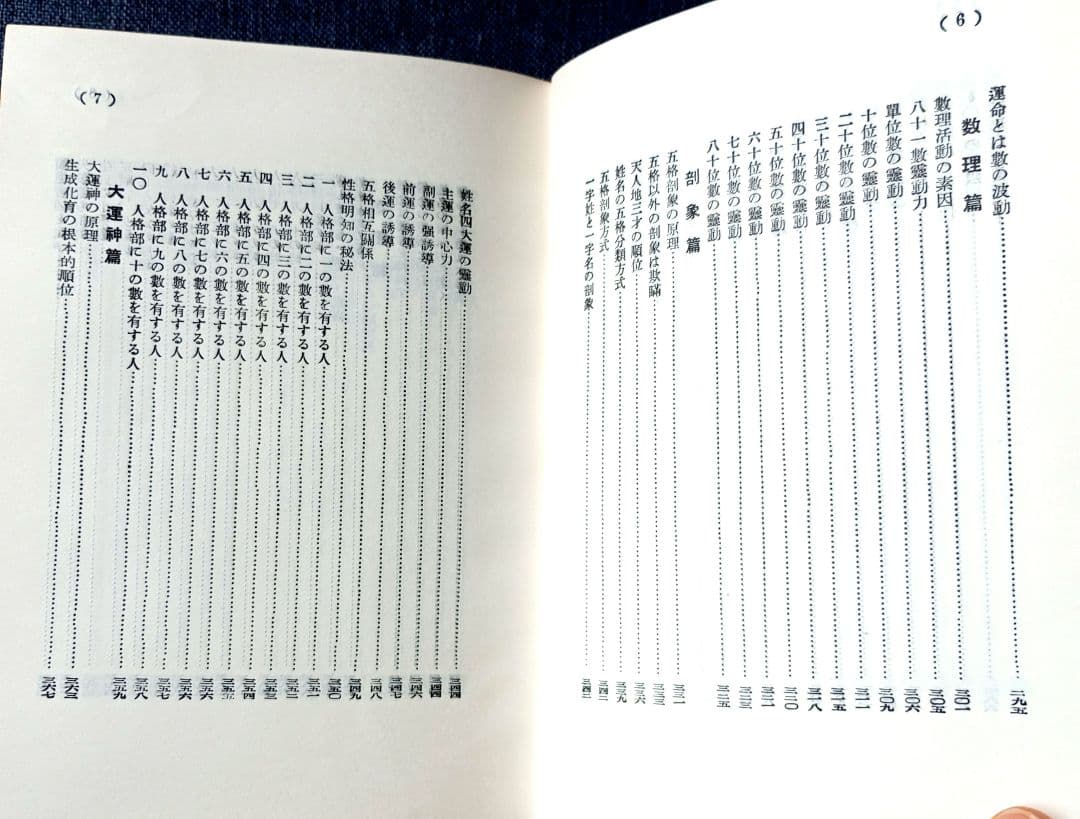 (6)
運命とは數の波動 二九五
数理篇
數理活動の素因 三〇一
八十一數靈動力 三〇五
單位數の靈動 三〇六
十位數の靈動 三〇九
二十位數の靈動 三一一
三十位數の靈動 三一五
四十位數の靈動 三一八
五十位數の靈動 三二〇
六十位數の靈動 三二一
七十位數の靈動 三二三
八十位數の靈動 三二五
剖象篇
五格剖象の原理 三三一
五格以外の剖象は欺瞞 三三三
天人地三才の順位 三三三
姓名の五格分類方式 三三九
五格剖象方式 三四二
一字姓と一字名の剖象 三四二
(7)
姓名四大運の靈動 三四四
主運の中心力 三四四
副運の强誘導 三四六
前運の誘導 三四七
後運の誘導 三四八
五格相互關係 三四九
性格明知の秘法 三五〇
一 人格部に一の數を有する人 三五一
二 人格部に二の數を有する人 三五二
三 人格部に三の數を有する人 三五三
四 人格部に四の數を有する人 三五四
五 人格部に五の數を有する人 三五五
六 人格部に六の數を有する人 三五六
七 人格部に七の數を有する人 三五六
八 人格部に八の數を有する人 三五七
九 人格部に九の數を有する人 三五八
一〇 人格部に十の數を有する人 三五九
大運神篇
大運神の原理 三六三
生成化育の根本的順位 三六七